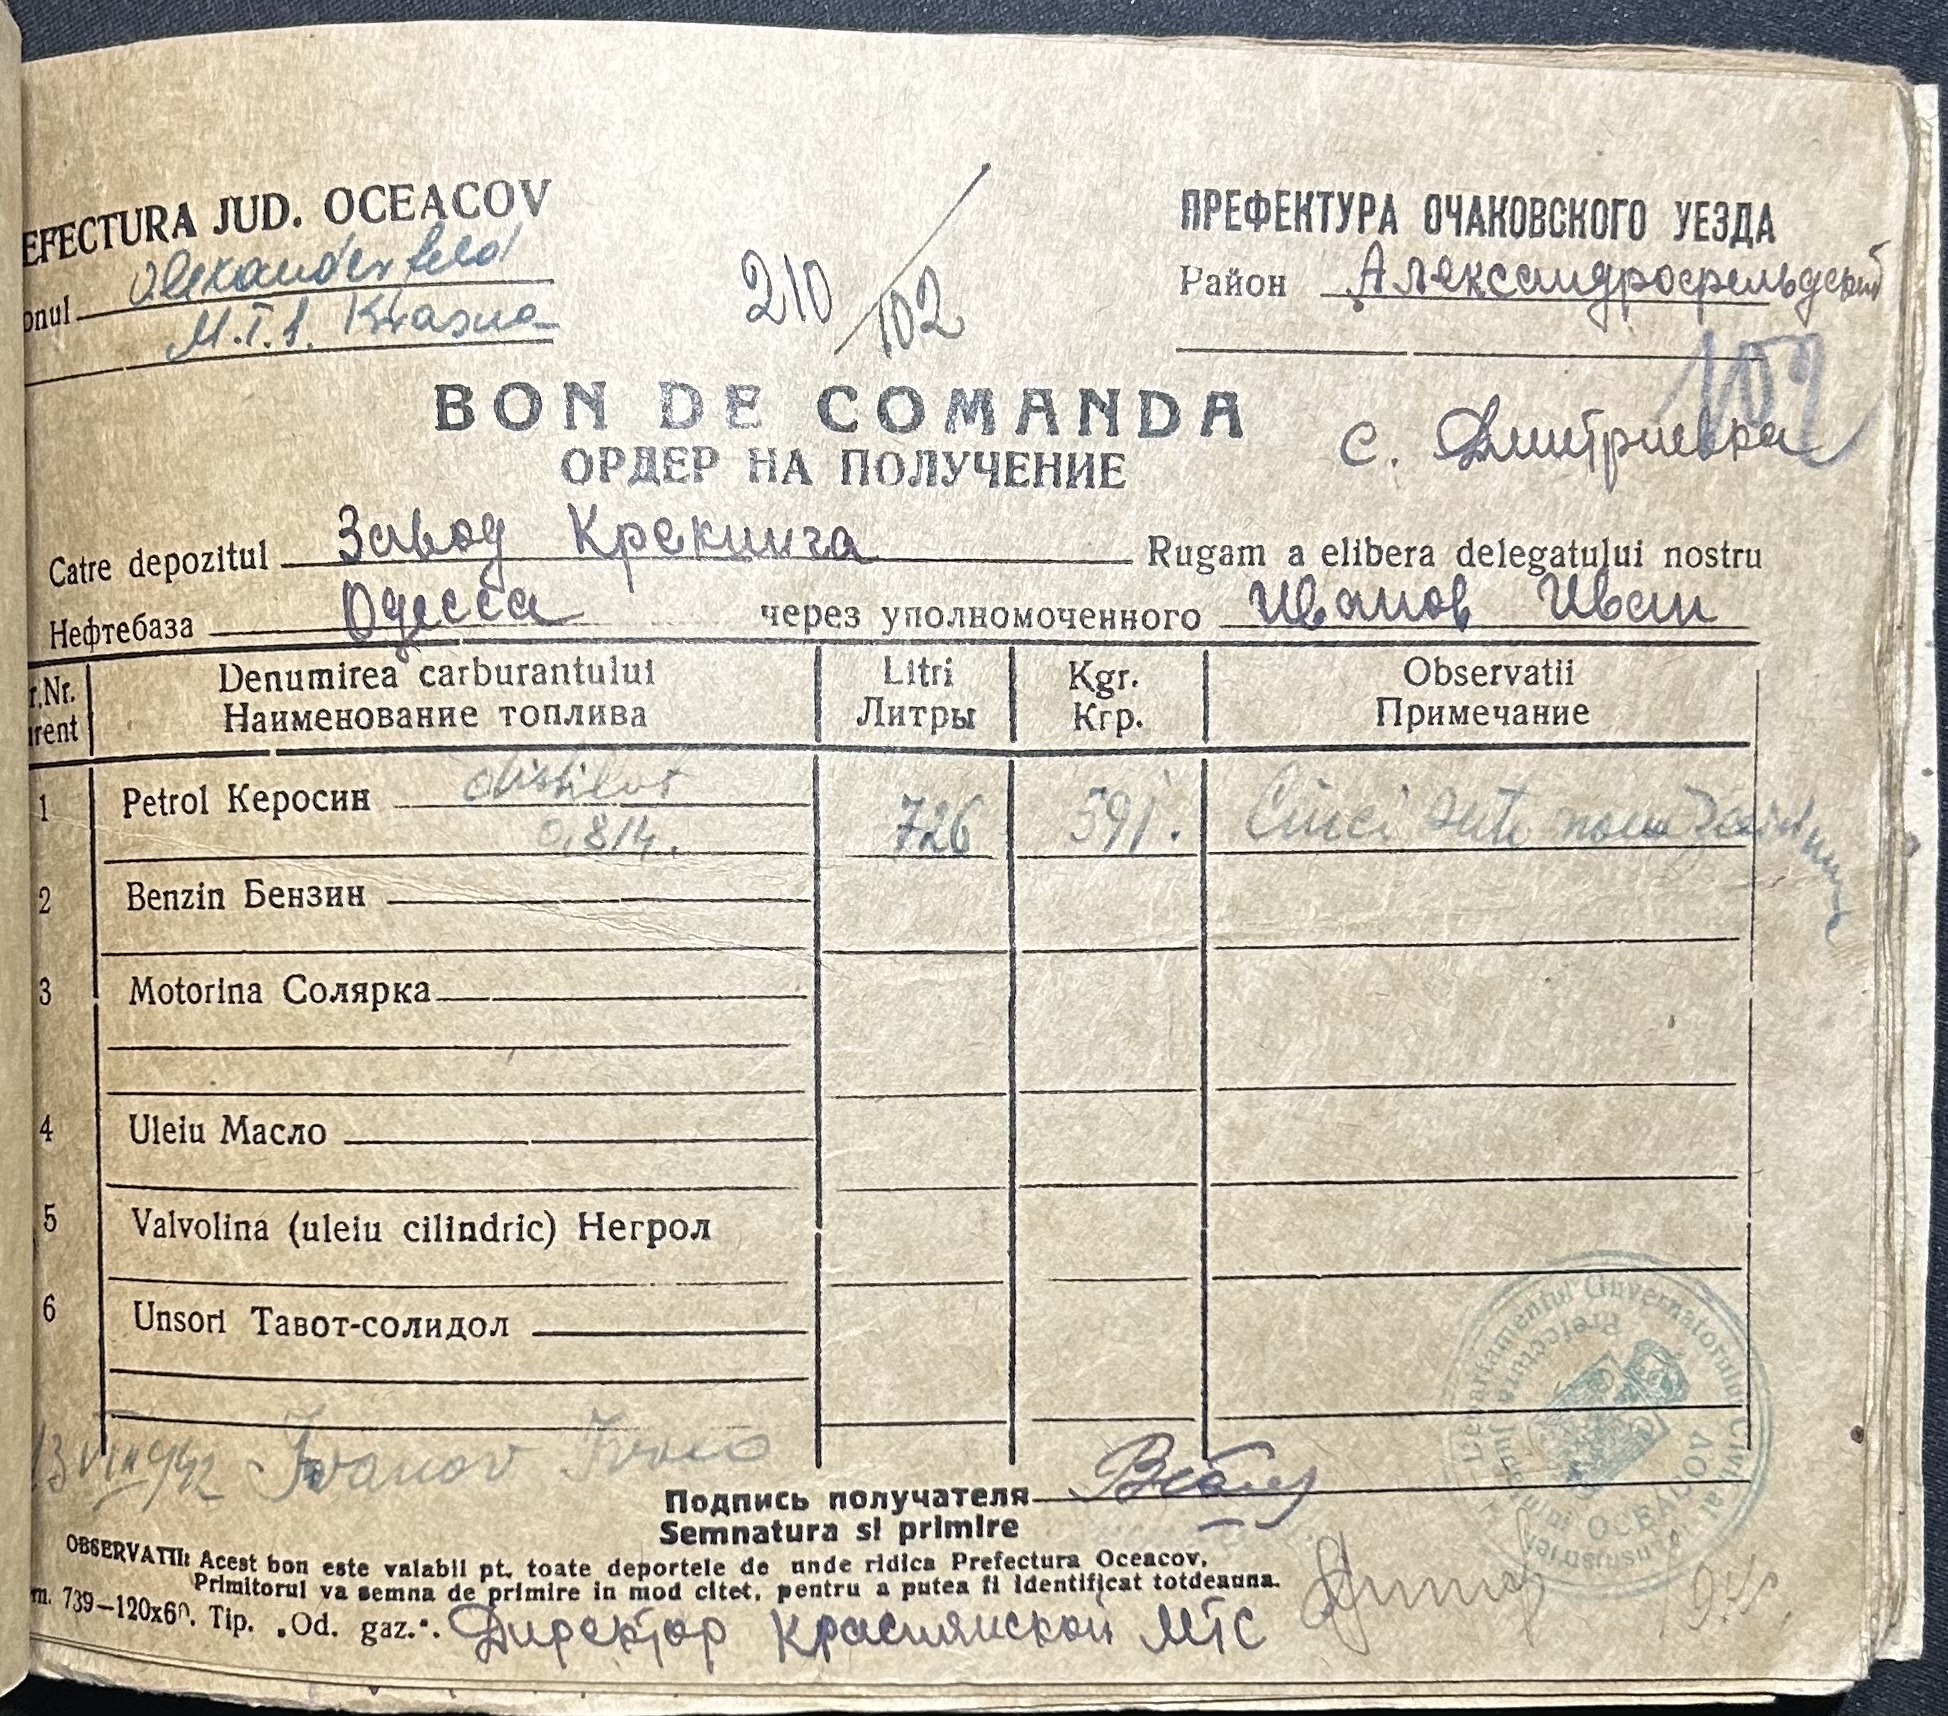 EFECTURA JUD. OCEACOV
onul Alexanderfeld
M.T.S. Krasna
210/102
ПРЕФЕКТУРА ОЧАКОВСКОГО УЕЗДА
Район Александрофельдский
102
BON DE COMANDA
ОРДЕР НА ПОЛУЧЕНИЕ
с. Дмитриевка
Catre depozitul Завод Крекинга Rugam a elibera delegatului nostru
Нефтебаза Одесса через уполномоченного Иванов Иван
r.Nr. Denumirea carburantului Litri Kgr. Observatii
rent Наименование топлива Литры Кгр. Примечание
1 Petrol Керосин distilat 726 591. Cinci sute nouazeci unu
0,814.
2 Benzin Бензин
3 Motorina Солярка
4 Uleiu Масло
5 Valvolina (uleiu cilindric) Негрол
6 Unsori Тавот-солидол
13 VIII 942 Ivanov Ivan
Подпись получателя
Semnatura si primire
OBSERVATII: Acest bon este valabil pt. toate deportele de unde ridica Prefectura Oceacov.
Primitorul va semna de primire in mod citet, pentru a putea fi identificat totdeauna.
m. 739—120x60. Tip. „Od. gaz.“. Директор Краснянской МТС
Departamentul Guvernatorului Civil al Transnistriei
Prefectura Județului OCEACOV